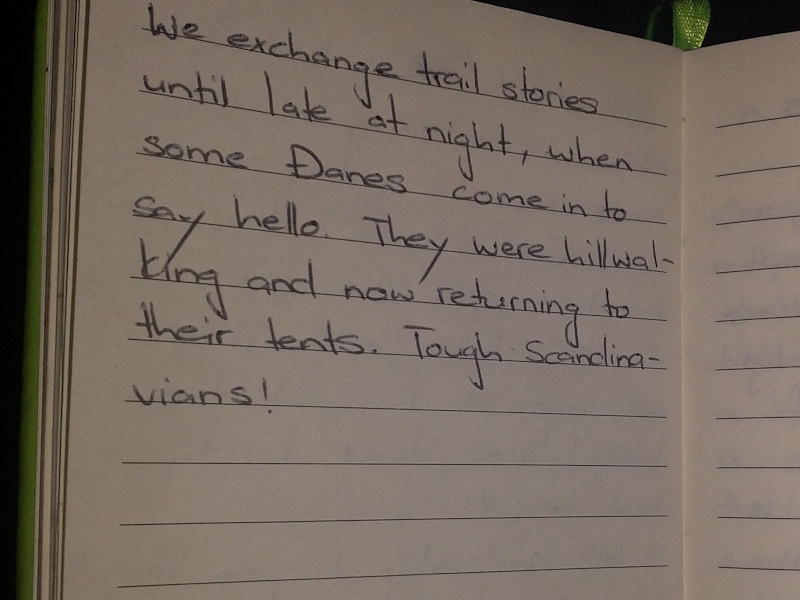 We exchange trail stories
until late at night, when
some Danes come in to
say hello. They were hillwal-
king and now returning to
their tents. Tough Scandina-
vians!